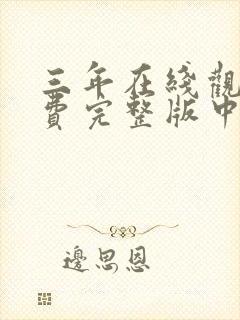 三年在綫觀
費完整版中
邊思恩